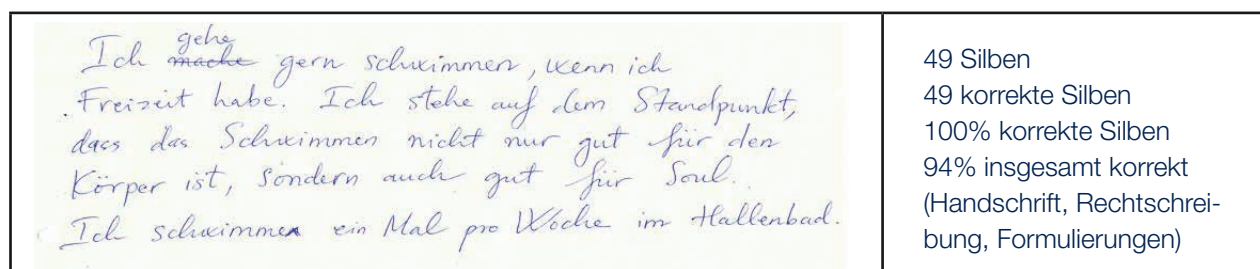 Ich mache gehe gern schwimmen, wenn ich
Freizeit habe. Ich stehe auf dem Standpunkt,
dass das Schwimmen nicht nur gut für den
Körper ist, sondern auch gut für Soul.
Ich schwimmen ein Mal pro Woche im Hallenbad.
49 Silben
49 korrekte Silben
100% korrekte Silben
94% insgesamt korrekt
(Handschrift, Rechtschrei-
bung, Formulierungen)